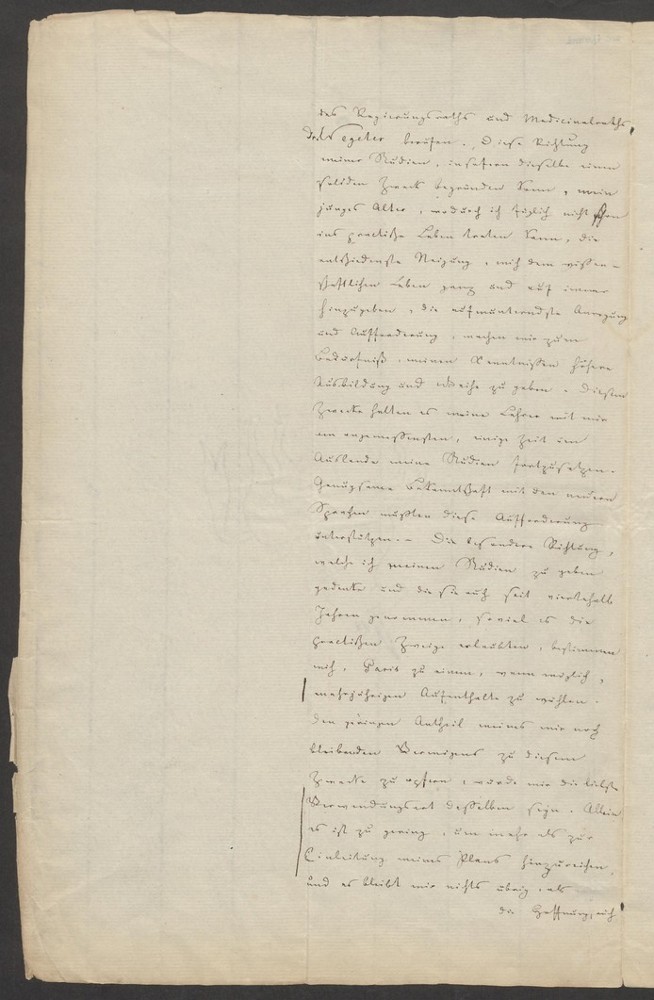 des Regierungsraths und Medicinalraths,
Dr. Wegeler berufen. Diese Richtung
meiner Studien, insofern dieselbe einen
soliden Zweck begründen kann, mein
junges Alter, wodurch ich füglich nicht schon
ins practische Leben treten kann, die
entschiedenste Neigung, mich dem wissen-
schaftlichen Leben ganz und auf immer
hinzugeben, die aufmunterndste Anregung
und Aufforderung, machen mir zum
Bedürfniß, meinen Kenntnissen höhere
Ausbildung und Weihe zu geben. Diesem
Zwecke halten es meine Lehrer mit mir
am angemessensten, einige Zeit im
Auslande meine Studien fortzusetzen.
Genügsame Bekanntschaft mit den neuern
Sprachen mußten diese Aufforderung
unterstützen. – Die besondere Richtung,
welche ich meinen Studien zu geben
gedenke und die sie auch seit vierthalb
Jahren genommen, soviel es die
practischen Zweige erlaubten, bestimmen
mich, Paris zu einem, wenn möglich,
mehrjährigen Aufenthalte zu wählen.
Den geringen Antheil meines mir noch
bleibenden Vermögens zu diesem
Zwecke zu opfern, würde mir die liebste
Verwendungsart desselben seyn. Allein
es ist zu gering, um mehr als zur
Einleitung meines Plans hinzureichen,
und es bleibt mir nichts übrig, als
die Hoffnung, auch